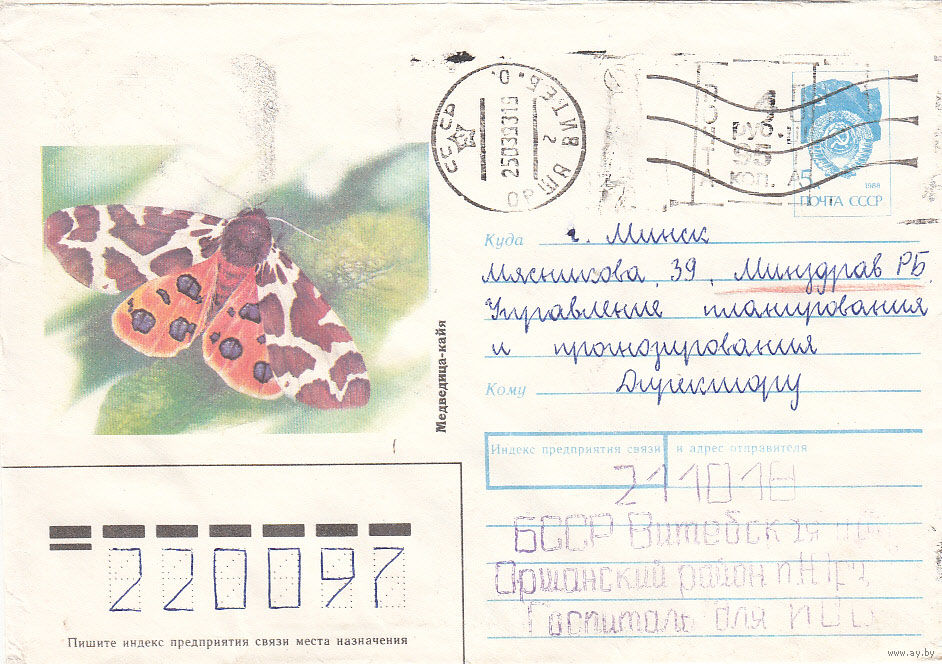 СССР
ВИТЕБ. О.
25039319
2
ОР
ПОЧТА
руб.
95
коп.
А5
1988
ПОЧТА СССР
Медведица-кайя
Куда г. Минск
Мясникова, 39, Минздрав РБ
Управление планирования
и прогнозирования
Кому Директору
Индекс предприятия связи и адрес отправителя
211018
БССР Витебская
Оршанский район п.
Госпиталь для
220097
Пишите индекс предприятия связи места назначения
www.ay.by